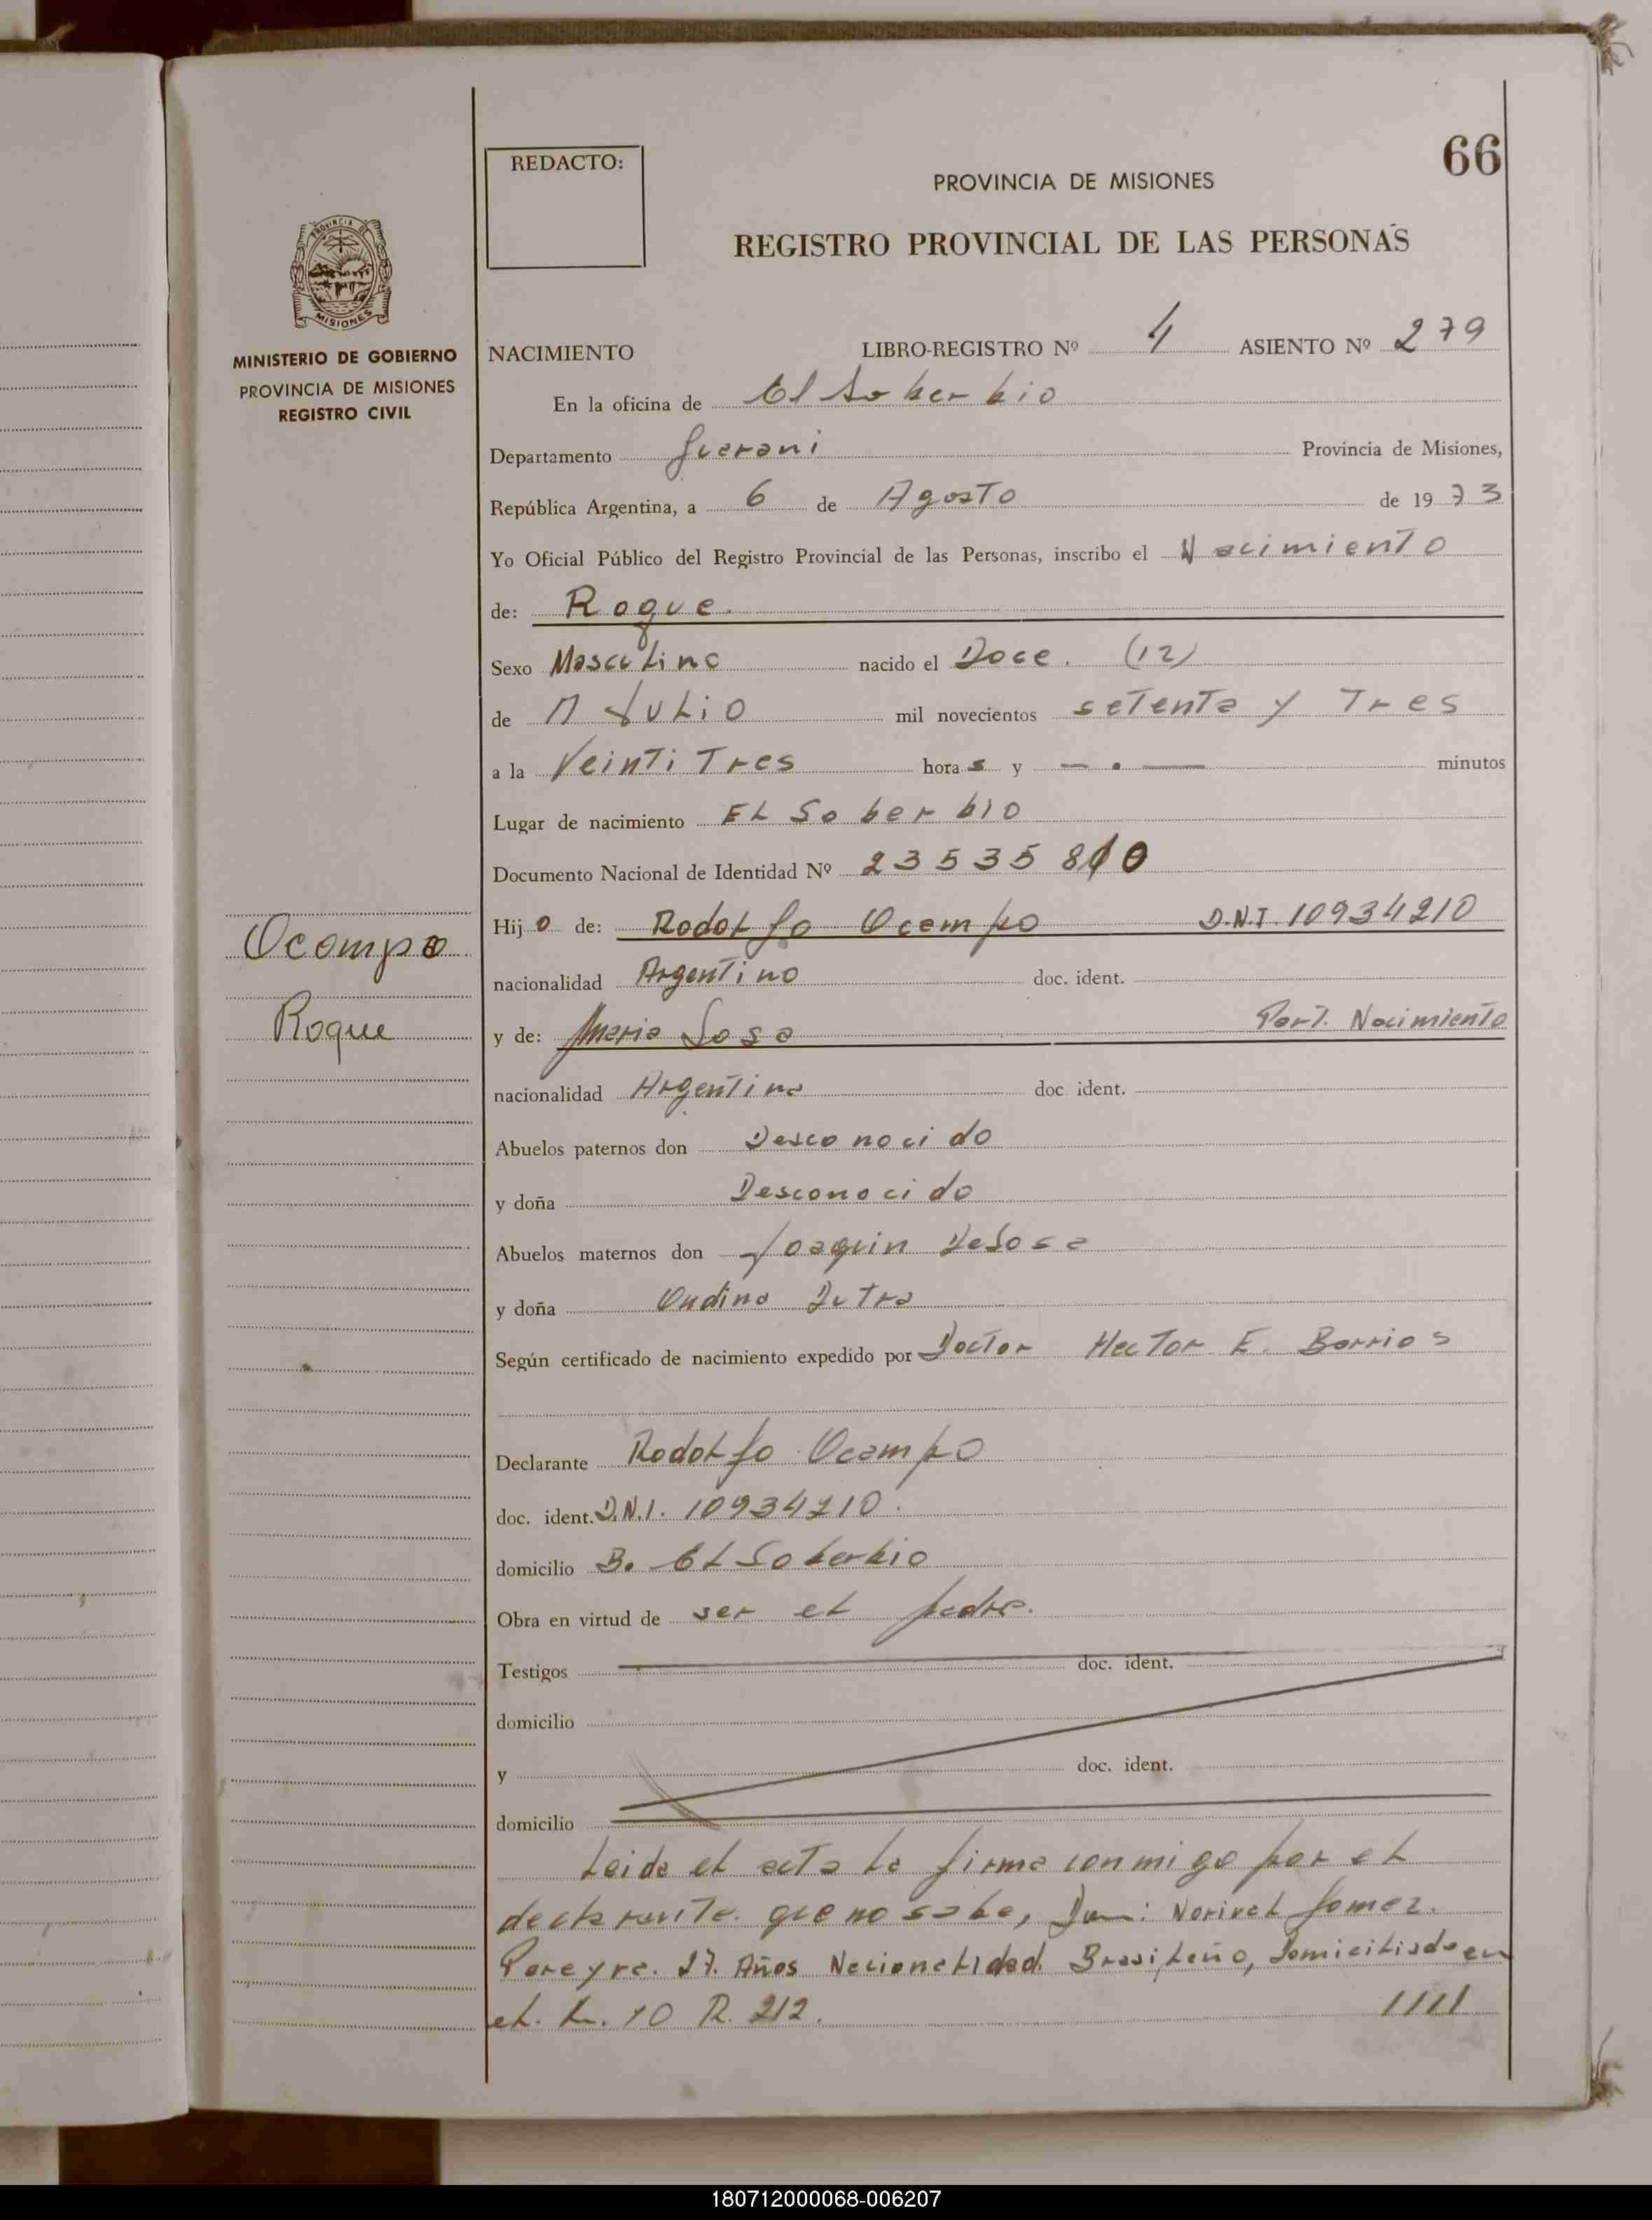 66
REDACTO:
PROVINCIA DE MISIONES
REGISTRO PROVINCIAL DE LAS PERSONAS
PROVINCIA DE
MISIONES
MINISTERIO DE GOBIERNO
PROVINCIA DE MISIONES
REGISTRO CIVIL
NACIMIENTO LIBRO-REGISTRO Nº 4 ASIENTO Nº 279
En la oficina de El Soberbio
Departamento Guarani Provincia de Misiones,
República Argentina, a 6 de Agosto de 1973
Yo Oficial Público del Registro Provincial de las Personas, inscribo el Nacimiento
de: Roque.
Sexo Masculino nacido el Doce. (12)
de Julio mil novecientos setenta y Tres
a la VeintiTres horas y — . — minutos
Lugar de nacimiento EL Soberbio
Documento Nacional de Identidad Nº 23535810
Hijo de: Rodolfo Ocampo D.N.I. 10934210
nacionalidad Argentino doc. ident.
y de: Maria Sosa Part. Nacimiento
nacionalidad Argentina doc. ident.
Abuelos paternos don Desconocido
y doña Desconocido
Abuelos maternos don Joaquin DeSosa
y doña Ondina Dutra
Según certificado de nacimiento expedido por Doctor Hector E. Barrios
Declarante Rodolfo Ocampo
doc. ident. D.N.I. 10934210.
domicilio Bo El Soberbio
Obra en virtud de ser el padre.
Testigos doc. ident.
domicilio
y doc. ident.
domicilio
Leida el acta la firma conmigo por el
declarante que no sabe, Norivel Gomez.
Pereyra. 27. Años Nacionalidad Brasileño, Domiciliado en
el. L. 10 R. 212. ////
Ocampo
Roque
180712000068-006207